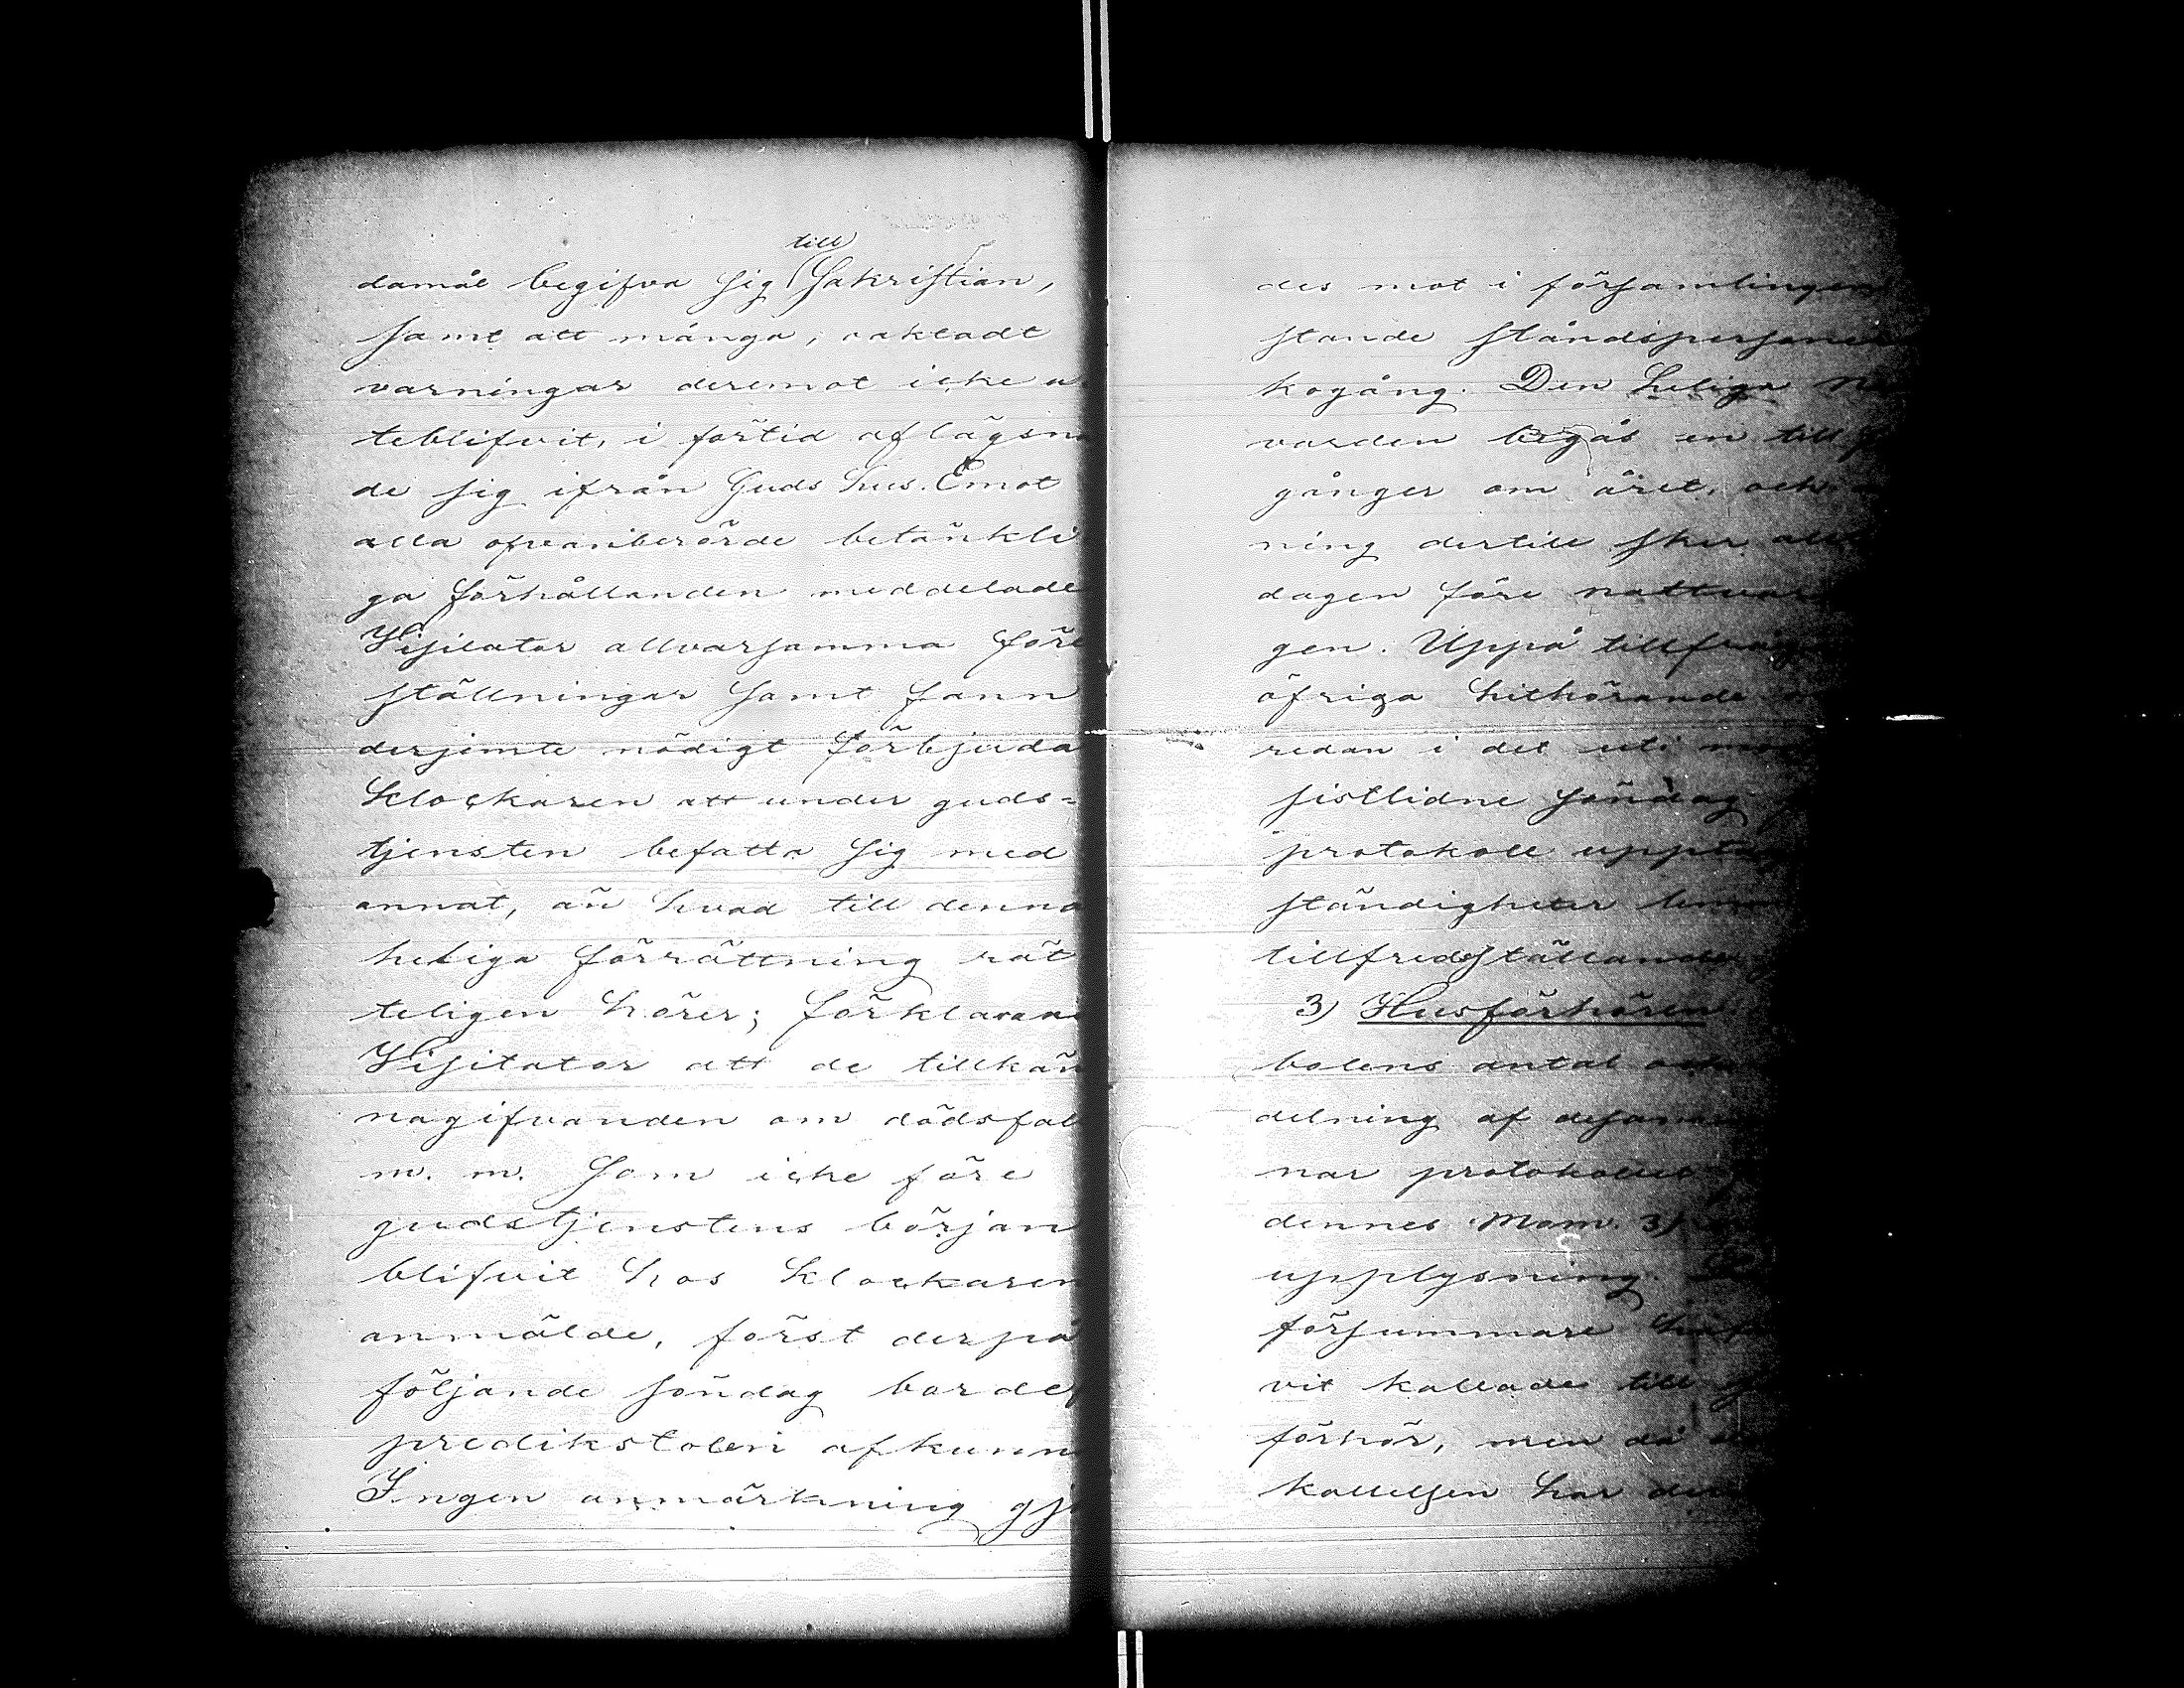 till
damål begifva sig sakristian,
samt att många, oaktadt
varningar deremot icke u
teblifvit, i förtid aflägsna
de sig ifrån Guds hus. Emot
alla ofvanberörde betänkli
ga förhållanden meddelade
Visitator allvarsamma före
ställningar samt fann
derjemte nödigt förbjuda
Klockaren att under guds=
tjensten befatta sig med
annat, än hvad till denna
heliga förrättning rät
teligen hörer; förklarane
Visitator att de tillkän
nagifvanden om dödsfal
m. m. som icke före
gudstjenstens början
blifvit hos klockaren
anmälde, först derpå
följande söndag bar de
predikstolen afkunn
Ingen anmärkning gjo
des mot i församlingen
stande ståndspersoner
kogång. Den heliga
varden begås en till
gånger om året, och
ning dertill sker
dagen före nattvar
gen. Uppå tillfråg
öfriga hithörande
redan i det uti
sistlidne söndag
protokoll uppta
ständigheter
tillfredsställande
3) Husförhören
bolens antal
delning af desamma
nar protokollet
dennes Mom. 3)
upplysning
försummare
vit kallade till
förhör, men då
kallelsen har